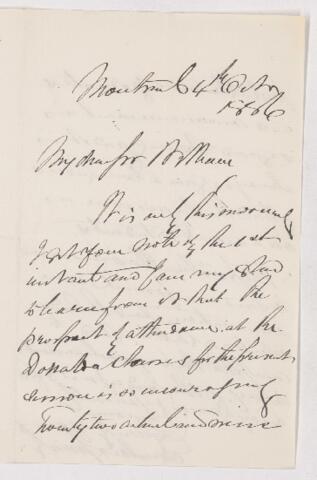 Montreal 4th Octr
1886
My dear Sir William
It is only this morning
I got your note of the 1st
instant and I am very glad
to learn from it that the
prospect of attendance at the
Donalda Classes for the present
session is so encouraging
Twenty two actual and nine